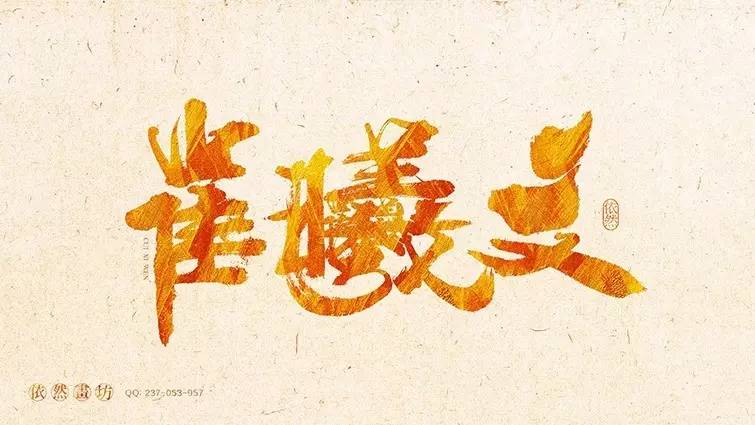 崔曦文
CUI XI WEN
依然
依然畫坊 QQ: 237-053-957